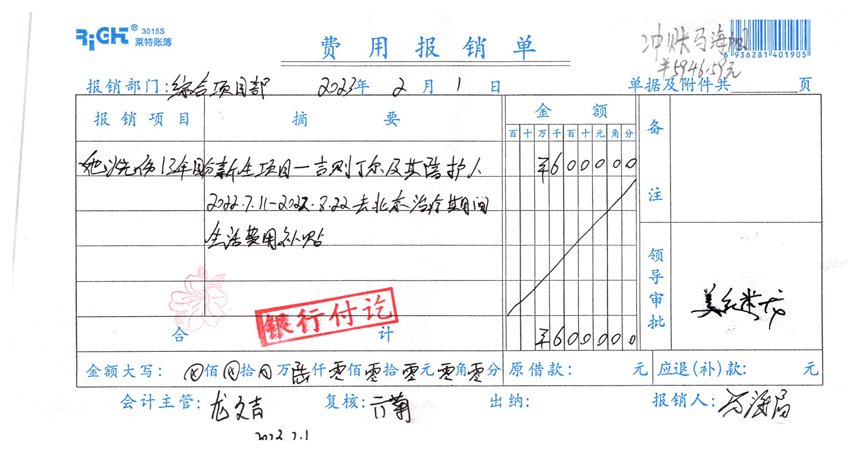 RiGHT® 3015S
莱特账簿
费用报销单
冲账马海
¥5946.59元
6 936281 401905
报销部门:综合项目部 2023年 2月 1日 单据及附件共 页
报销项目 摘要 金额 备注
百十万千百十元角分
新生项目—吉则丁尔及其陪护人 ¥600000
2022.7.11-2022.8.22去北京治疗期间
生活费用补贴
领导审批
银行付讫
合计 ¥600000
金额大写: 佰 拾 万陆仟零佰零拾零元零角零分 原借款: 元 应退(补)款: 元
会计主管:龙文吉 复核: 出纳: 报销人:
2023.2.1